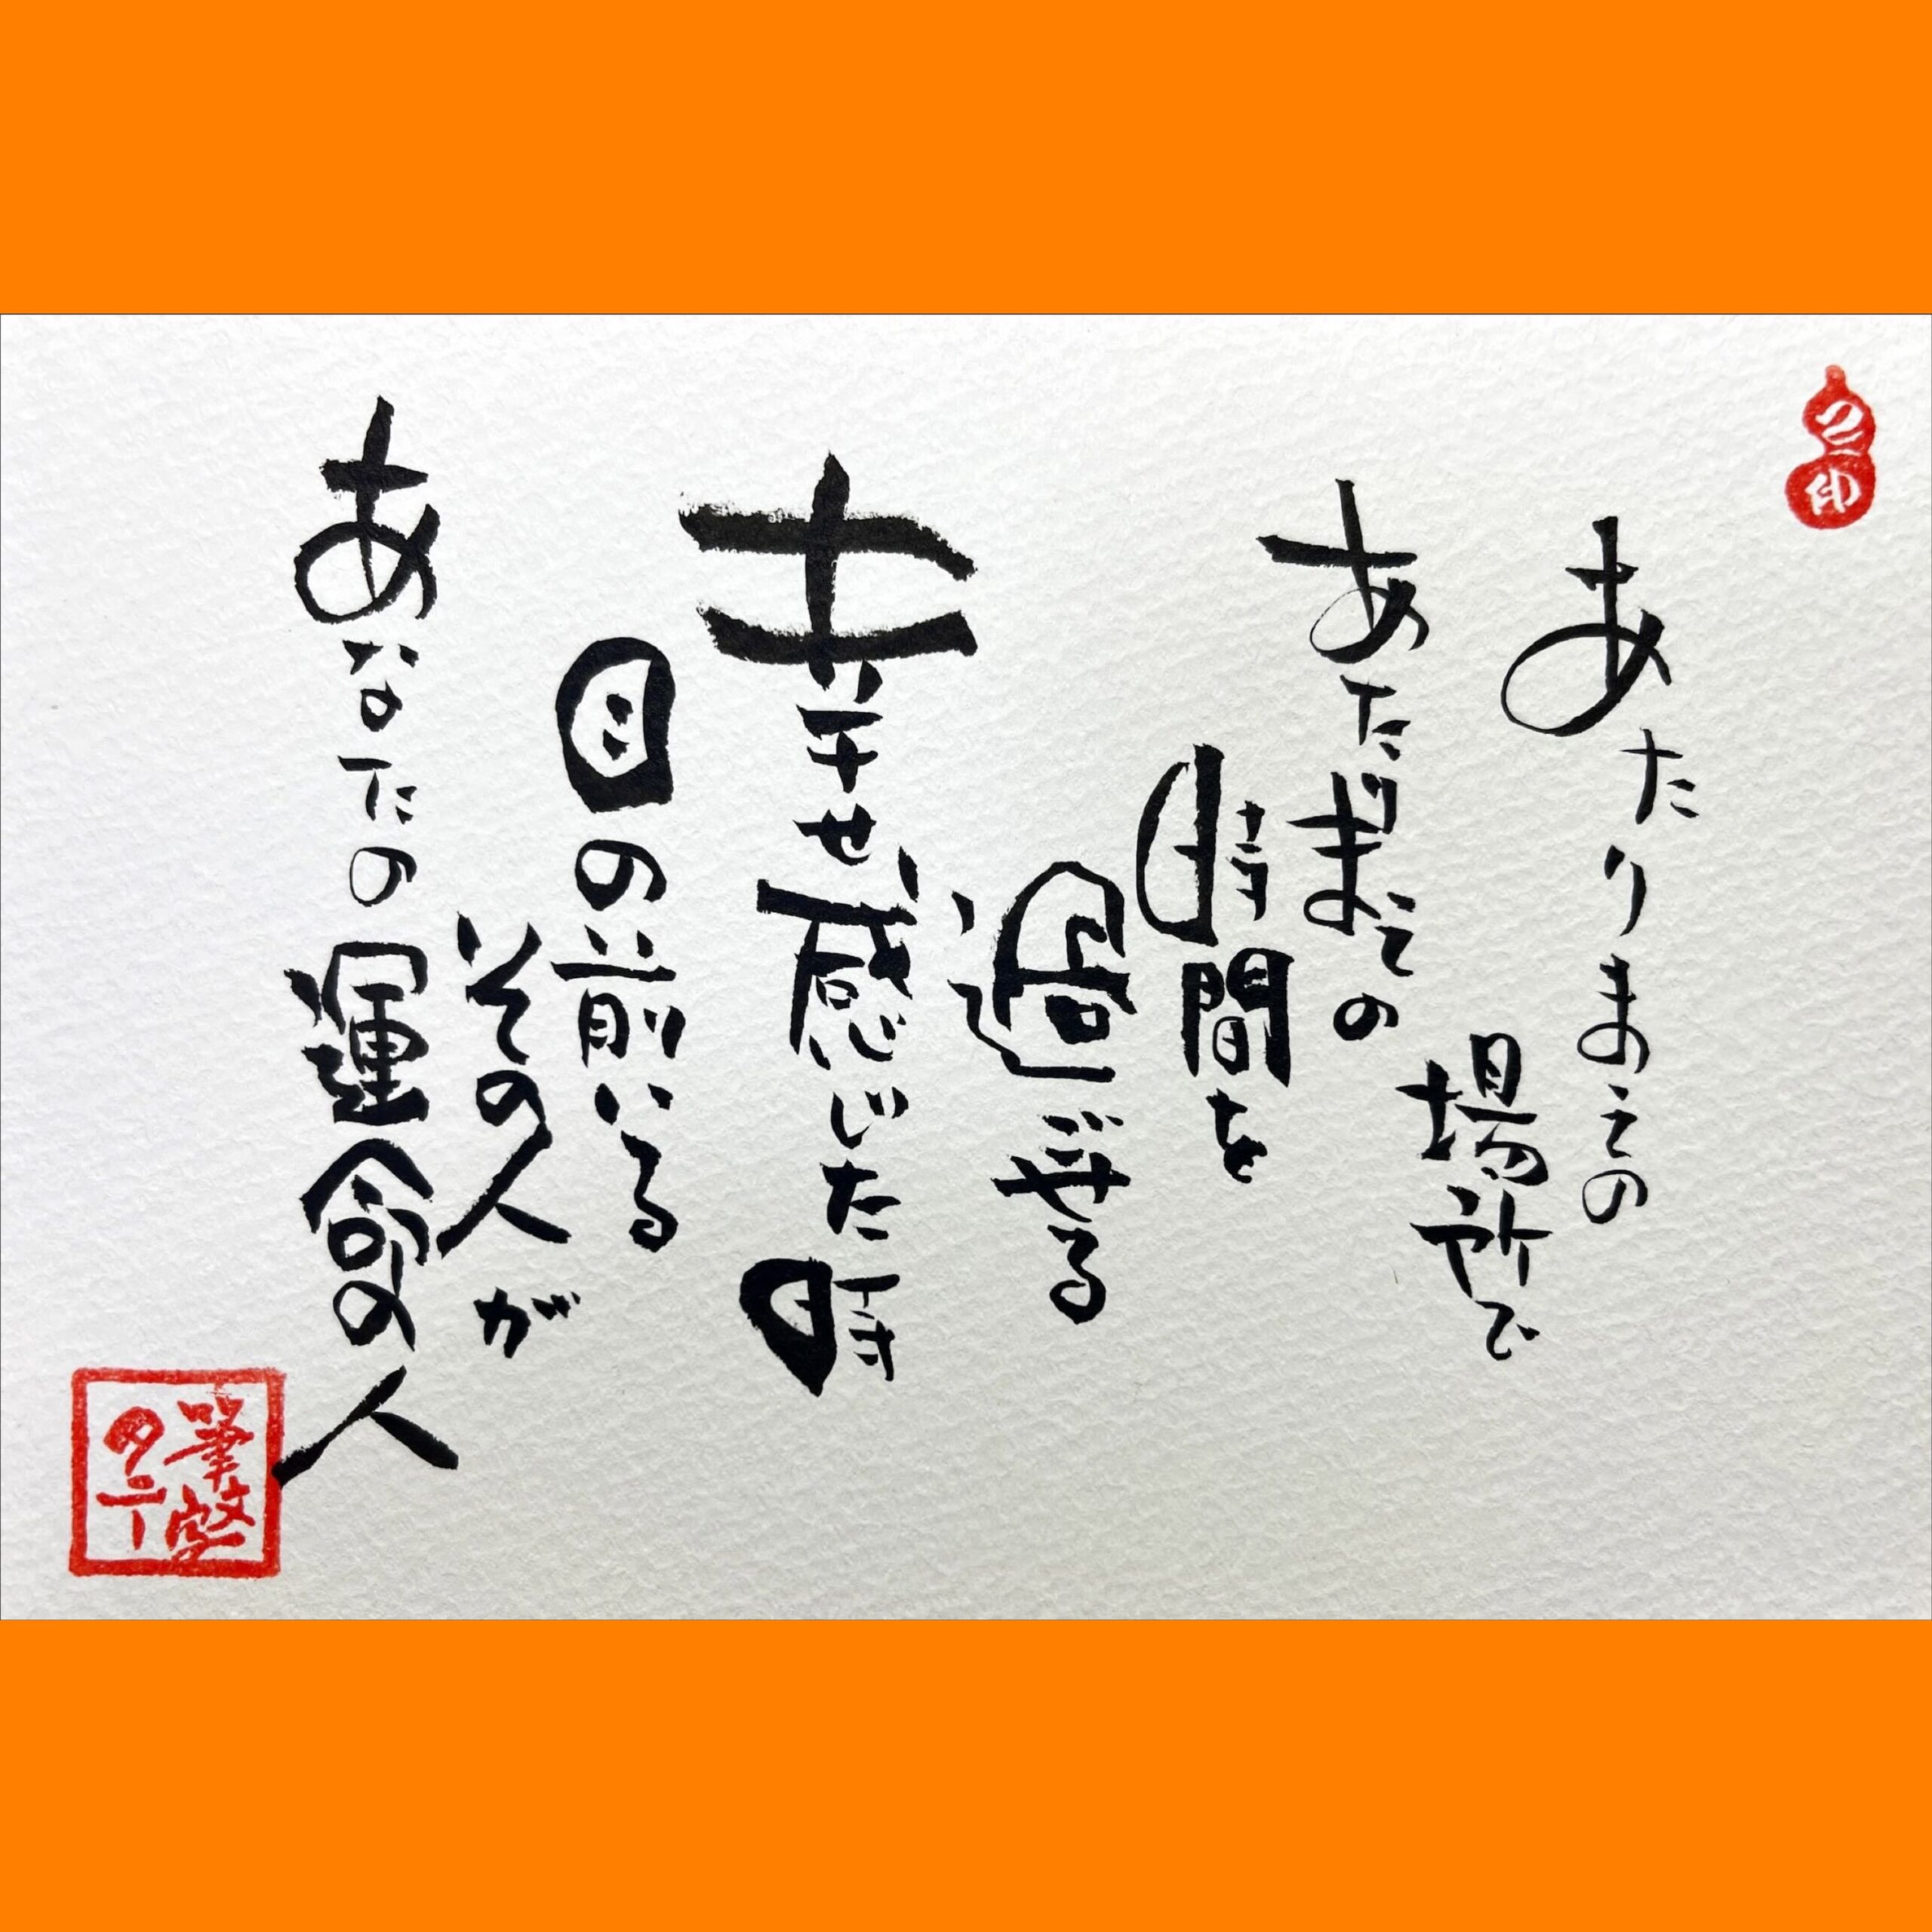 あたりまえの
場所で
あたりまえの
時間を
過ごせる
幸せ感じた時
目の前いる
その人が
あなたの運命の人
筆文字
タニー